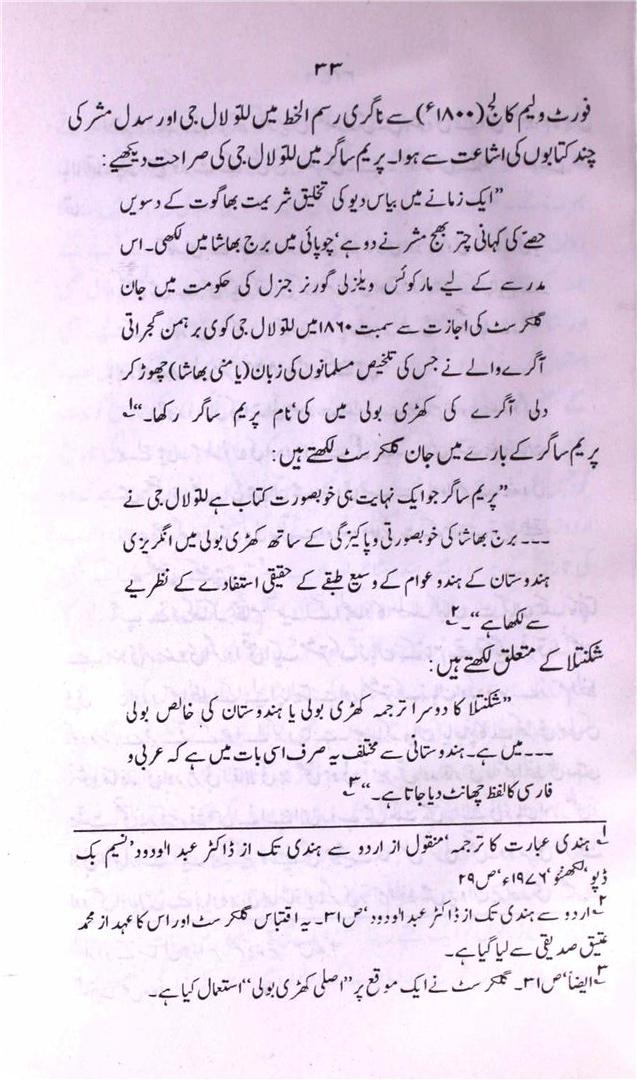 ۳۳
فورٹ ولیم کالج (۱۸۰۰ء) سے ناگری رسم الخط میں للّو لال جی اور سدل مشر کی
چند کتابوں کی اشاعت سے ہوا۔ پریم ساگر میں للّو لال جی کی صراحت دیکھیے:
”ایک زمانے میں بیاس دیو کی تخلیق شریمت بھاگوت کے دسویں
حصّے کی کہانی چتر بھج مشر نے دوہے‘ چوپائی میں برج بھاشا میں لکھی۔ اس
مدرسے کے لیے مارکوئس ویلزلی گورنر جنرل کی حکومت میں جان
گلکرسٹ کی اجازت سے سمبت ۱۸۶۰ میں للّو لال جی کوی برہمن گجراتی
آگرے والے نے جس کی تلخیص مسلمانوں کی زبان (یامنی بھاشا) چھوڑ کر
دلی آگرے کی کھڑی بولی میں کی‘ نام پریم ساگر رکھا۔“ ۱؎
پریم ساگر کے بارے میں جان گلکرسٹ لکھتے ہیں:
”پریم ساگر جو ایک نہایت ہی خوبصورت کتاب ہے للّو لال جی نے
۔۔۔ برج بھاشا کی خوبصورتی و پاکیزگی کے ساتھ کھڑی بولی میں انگریزی
ہندوستان کے ہندو عوام کے وسیع طبقے کے حقیقی استفادے کے نظریے
سے لکھا ہے“۔ ۲؎
شکنتلا کے متعلق لکھتے ہیں:
”شکنتلا کا دوسرا ترجمہ کھڑی بولی یا ہندوستان کی خالص بولی
۔۔۔ میں ہے۔ ہندوستانی سے مختلف یہ صرف اسی بات میں ہے کہ عربی و
فارسی کا لفظ چھانٹ دیا جاتا ہے۔“ ۳؎
۱؎ ہندی عبارت کا ترجمہ‘ منقول از اردو سے ہندی تک از ڈاکٹر عبدالودود‘ نسیم بک
ڈپو‘ لکھنؤ‘ ۱۹۷۶ء‘ ص ۲۹
۲؎ اردو سے ہندی تک از ڈاکٹر عبدالودود‘ ص ۳۱۔ یہ اقتباس گلکرسٹ اور اس کا عہد از محمد
عتیق صدیقی سے لیا گیا ہے۔
۳؎ ایضاً‘ ص ۳۱۔ گلکرسٹ نے ایک موقع پر ”اصلی کھڑی بولی“ استعمال کیا ہے۔